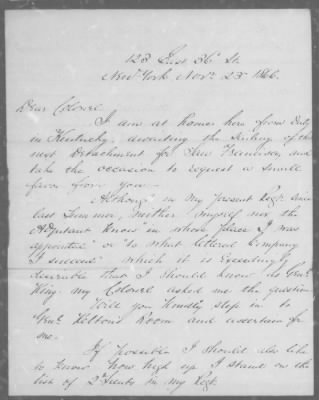 123 East 36 St.
New York Nov. 23d 1866.
Dear Colonel
I am at home here from Duty
in Kentucky, awaiting the sailing of the
next Detachment for San Francisco, and
take the occasion to request a small
favor from you.
Although in My Present Regt. since
last Summer, neither myself nor the
Adjutant know in whose place I was
appointed or "to what lettered Company
I succeed" which it is Exceedingly
desirable that I should know as Genl.
King my Colonel asked me the question.
Will you kindly step in to
Genl. Kelton's Room and ascertain for
me.
If possible I should also like
to know how high up I stand on the
list of 2d Lieuts in my Regt.